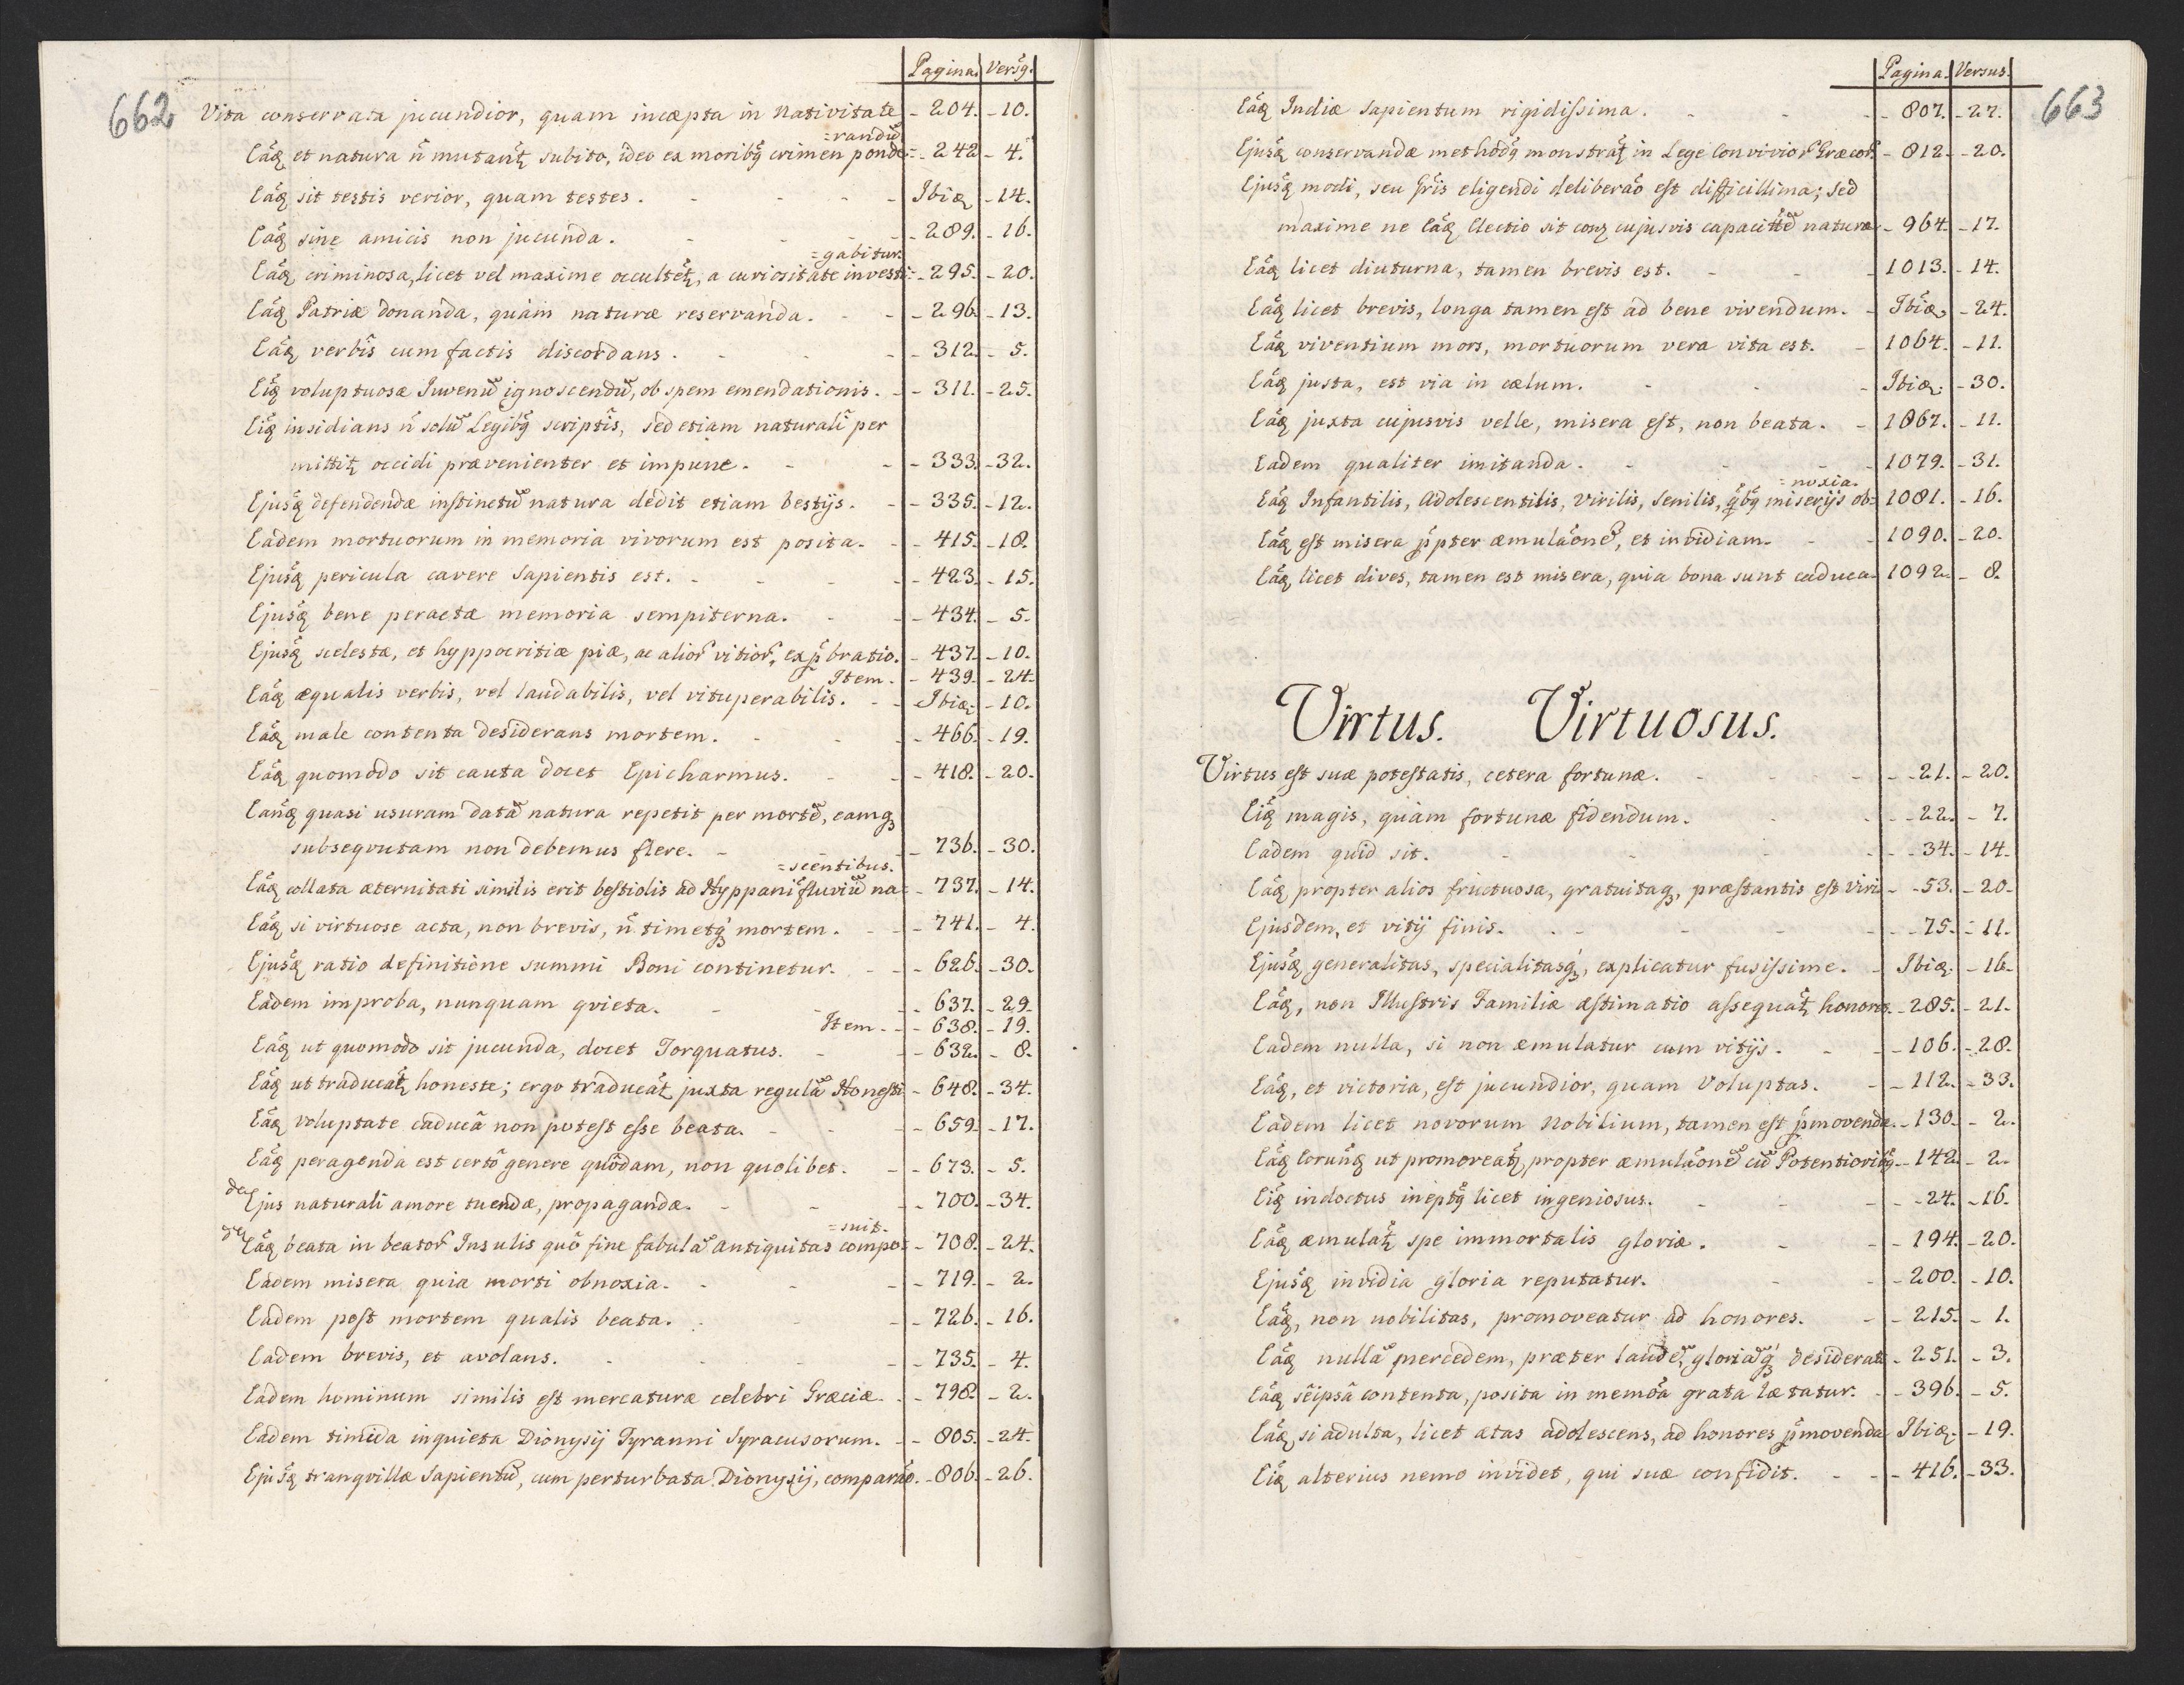 Pagina. Versq.
662
Vita conservata jucundior, quam incæpta in Nativitate - 204. - 10.
=randũ
Eãq et natura ñ mutant subito, ideo ex moribq crimen ponde= - 242 - 4.
Eãq sit testis verior, quam testes. - Ibiq - 14.
Eãq sine amicis non jucunda. - 289. - 16.
=gabitur.
Eãq criminosa, licet vel maxime occultet, a curiositate investi= - 295. - 20.
Eãq Patriæ donanda, quàm naturæ reservanda. - 296. - 13.
Eãq verbis cum factis discordans. - 312. - 5.
Eiq voluptuosæ Iuvenũ ignoscendũ, ob spem emendationis. - 311. - 25.
Eiq insidians ñ solũ Legibq scriptis, sed etiam naturali per
mittit occidi prævenienter et impune. - 333. - 32.
Ejusq defendendæ instinctũ natura dedit etiam bestijs. - 335. - 12.
Eadem mortuorum in memoria vivorum est posita. - 415. - 18.
Ejusq pericula cavere Sapientis est. - 423. - 15.
Ejusq bene peractæ memoria sempiterna. - 434. - 5.
Ejusq scelestæ, et hyppocritiæ piæ, ac alior vitior, exp̃bratio. - 437. - 10.
Item. - 439. - 24.
Eãq æqualis verbis, vel laudabilis, vel vituperabilis. - Ibiq - 10.
Eãq male contenta desiderans mortem. - 466. - 19.
Eãq quomodo sit cauta docet Epicharmus. - 418. - 20.
Eanq quasi usuram datã natura repetit per mortẽ, eamq
subsequutam non debemus flere. - 736. - 30.
=scentibus.
Eãq collata æternitati similis erit bestiolis ad Hyppani fluviũ na= - 737. - 14.
Eãq si virtuose acta, non brevis, ñ timetq mortem. - 741. - 4.
Ejusq ratio definitione summi Boni continetur. - 626. - 30.
Eadem improba, nunquam qvieta. - 637. - 29.
Item. - 638. - 19.
Eãq ut quomodo sit jucunda, docet Torquatus. - 632. - 8.
Eãq ut traducat honeste; ergo traducat juxta regulã Honesti - 648. - 34.
Eãq voluptate caducâ non potest esse beata. - 659. - 17.
Eãq peragenda est certô genere quôdam, non quolibet. - 673. - 5.
de Ejus naturali amore tuendæ, propagandæ. - 700. - 34.
=suit.
de Eãq beata in beator Insulis quô fine fabulã Antiquitas compo= - 708. - 24.
Eadem misera quia morti obnoxia. - 719. - 2.
Eadem post mortem qualis beata. - 726. - 16.
Eadem brevis, et avolans. - 735. - 4.
Eadem hominum similis est mercaturæ celebri Græciæ. - 798. - 2.
Eadem timida inquieta Dionysij Tyranni Syracusorum. - 805. - 24.
Ejusq tranqvillæ Sapientũ, cum perturbata Dionysij, comparão. - 806. - 26.
Pagina. Versus.
663
Eãq Indiæ Sapientum rigidissima. - 807. - 27.
Ejusq conservandæ methodq monstrat in Lege Convivior Græcor. - 812. - 20.
Ejusq modi, seu gñis eligendi deliberão est difficillima; sed
maxime ne Eãq Electio sit conz cujusvis capacittẽ naturæ - 964. - 17.
Eãq licet diuturna, tamen brevis est. - 1013. - 14.
Eãq licet brevis, longa tamen est ad bene vivendum. - Ibiq. - 24.
Eãq viventium mors, mortuorum vera vita est. - 1064. - 11.
Eãq justa, est via in cælum. - Ibiq. - 30.
Eãq juxta cujusvis velle, misera est, non beata. - 1067. - 11.
Eadem qualiter imitanda. - 1079. - 31.
=noxia.
Eãq Infantilis, Adolescentilis, Virilis, Senilis, qbq miserijs ob= 1081. - 16.
Eãq est misera p̃pter æmulãonẽ, et invidiam. - 1090. - 20.
Eãq licet dives, tamen est misera, quia bona sunt caduca 1092. - 8.
Virtus. Virtuosus.
Virtus est suæ potestatis, cetera fortunæ. - 21. - 20.
Eiq magis, quàm fortunæ fidendum. - 22. - 7.
Eadem quid sit. - 34. - 14.
Eãq propter alios fructuosa, gratuitaq, præstantis est Viri - 53. - 20.
Ejusdem, et vitij finis. - 75. - 11.
Ejusq generalitas, specialitasq, explicatur fusissime. - Ibiq. - 16.
Eãq, non Illustris Familiæ æstimatio assequat honores. - 285. - 21.
Eadem nulla, si non æmulatur cum vitijs. - 106. - 28.
Eãq, et victoria, est jucundior, quam Voluptas. - 112. - 33.
Eadem licet novorum Nobilium, tamen est p̃movenda. - 130. - 2.
Eãq Eorunq ut promoveat, propter æmulãonẽ cũ Potentioribq. - 142. - 2.
Eiq indoctus ineptq licet ingeniosus. - 24. - 16.
Eãq æmulat spe immortalis gloriæ. - 194. - 20.
Ejusq invidia gloria reputatur. - 200. - 10.
Eãq, non nobilitas, promoveatur ad honores. - 215. - 1.
Eãq nullã mercedem, præter laudẽ, gloriãq desiderat - 251. - 3.
Eãq seipsâ contenta, posita in memõa grata lætatur. - 396. - 5.
Eãq si adulta, licet ætas adolescens, ad honores p̃movenda Ibiq. - 19.
Eiq alterius nemo invidet, qui suæ confidit. - 416. - 33.